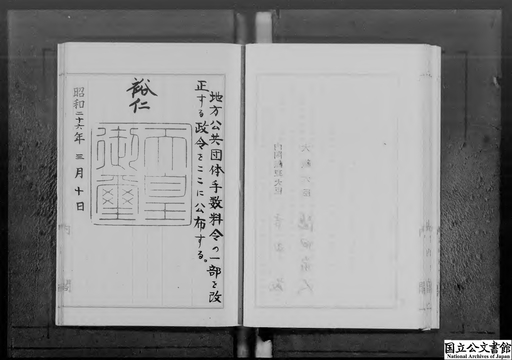 地方公共団体手数料令の一部を改
正する政令をここに公布する。
裕仁
天皇
御璽
昭和二十六年三月十日
国立公文書館
National Archives of Japan